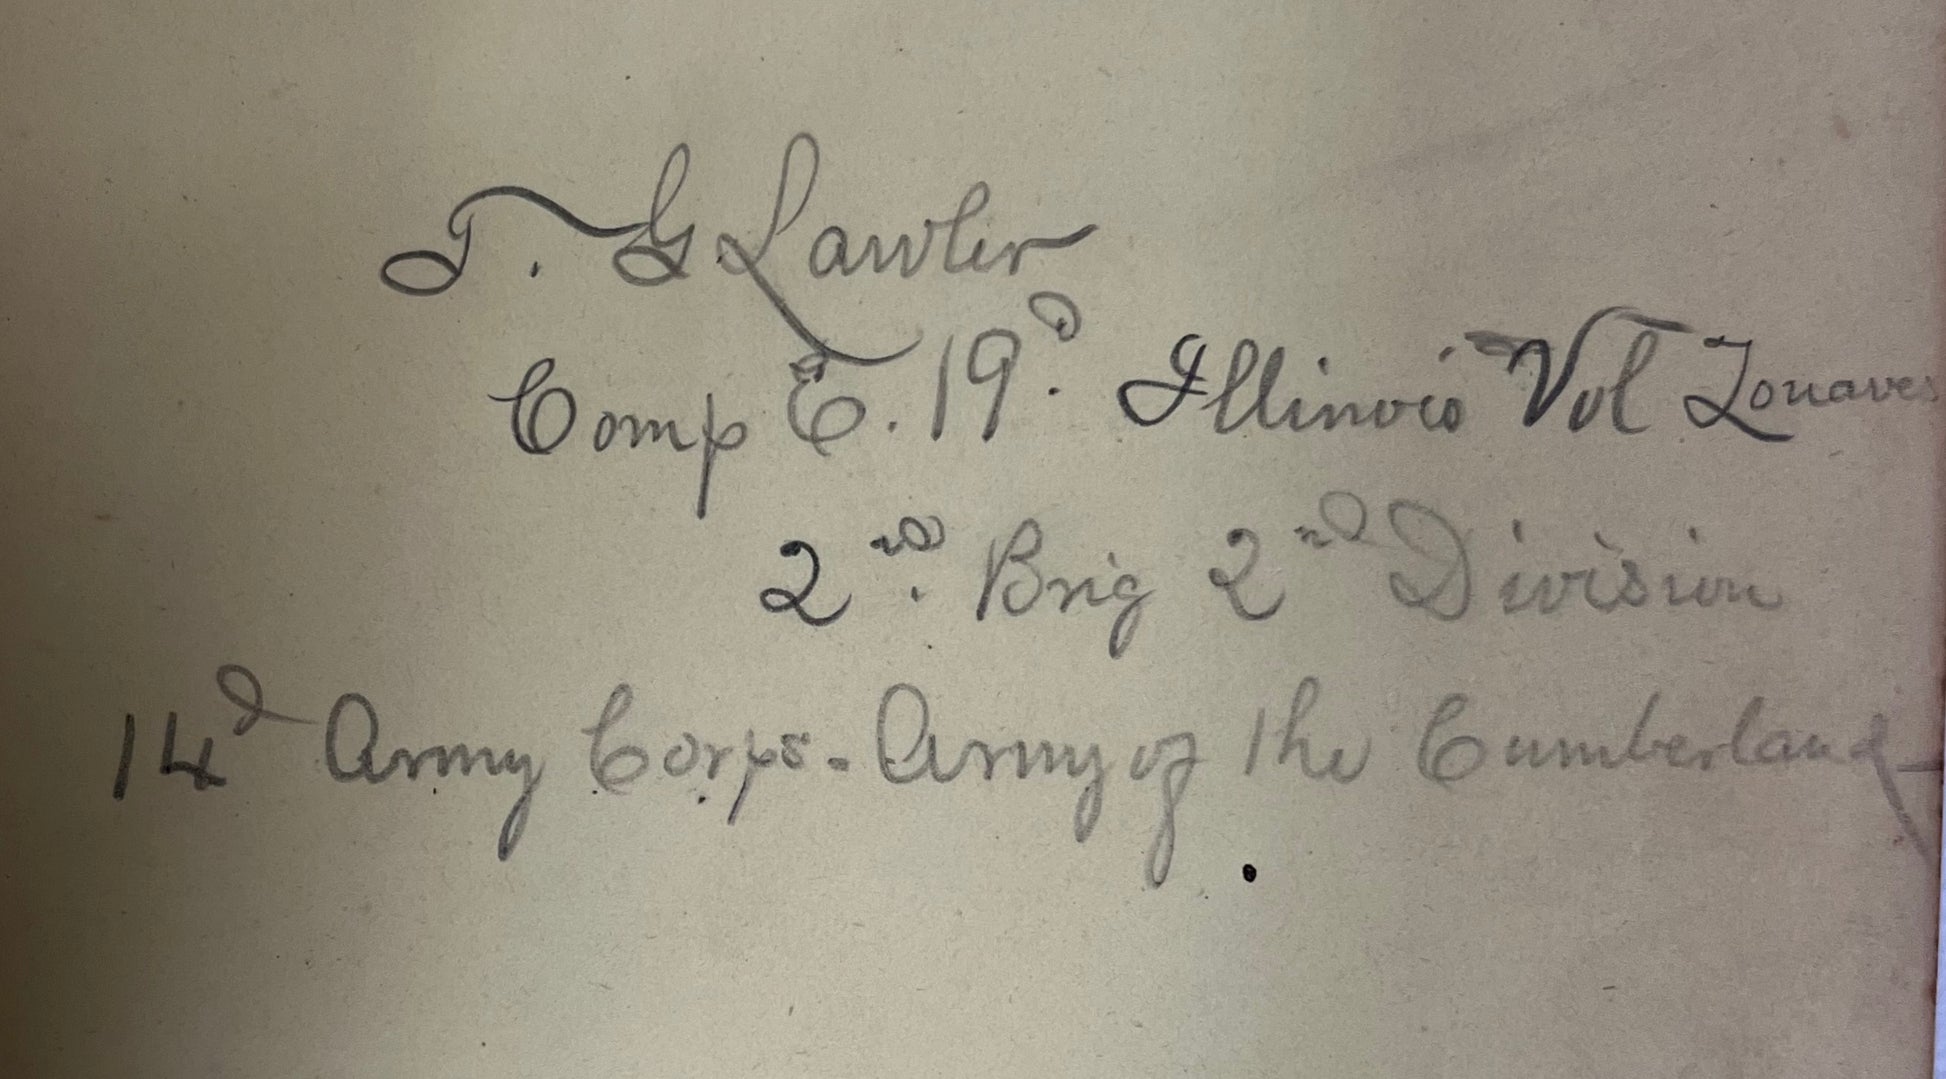 T. G Lawler
Comp E. 19d. Illinois Vol Zouaves
2nd. Brig 2nd Division
14d Army Corps - Army of the Cumberland